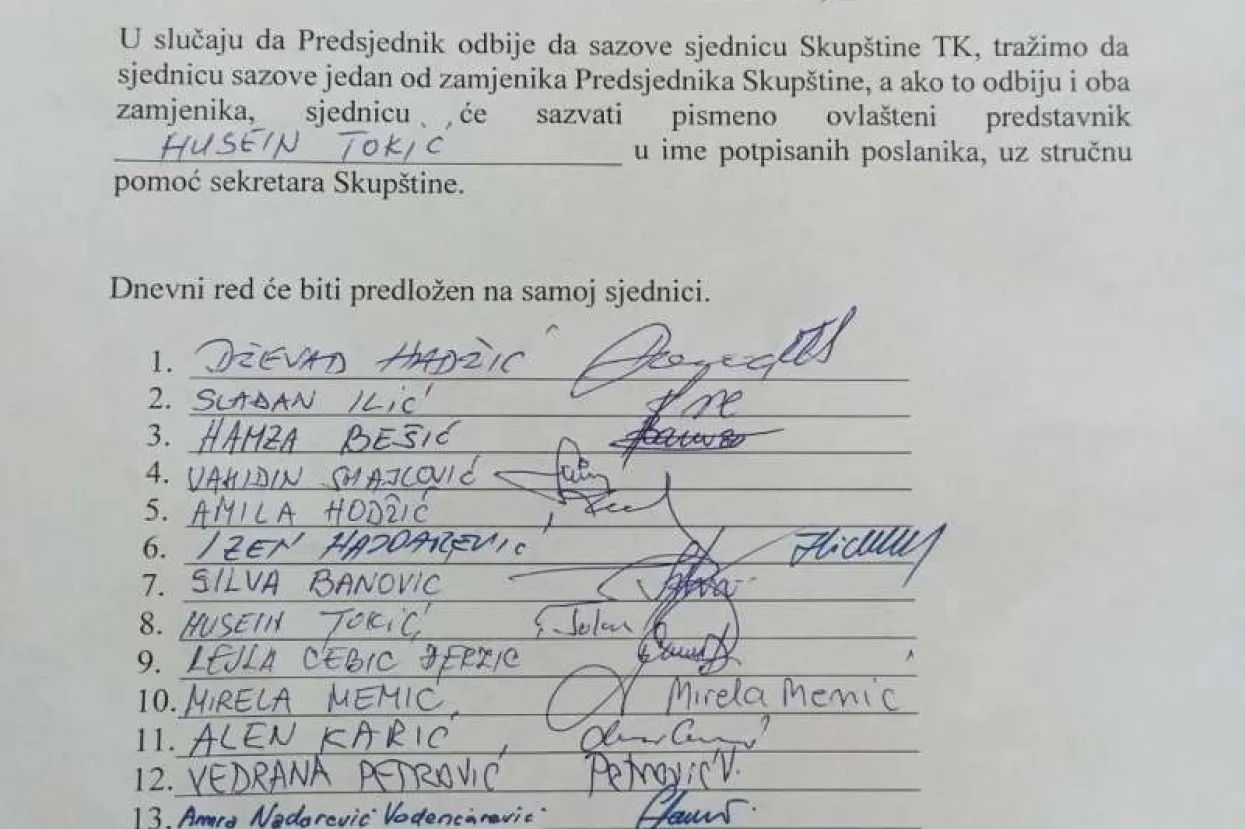 U slučaju da Predsjednik odbije da sazove sjednicu Skupštine TK, tražimo da
sjednicu sazove jedan od zamjenika Predsjednika Skupštine, a ako to odbiju i oba
zamjenika, sjednicu će sazvati pismeno ovlašteni predstavnik
HUSEIN TOKIĆ u ime potpisanih poslanika, uz stručnu
pomoć sekretara Skupštine.
Dnevni red će biti predložen na samoj sjednici.
1. DŽEVAD HADŽIĆ
2. SLAĐAN ILIĆ
3. HAMZA BEŠIĆ
4. VAHIDIN SMAJLOVIĆ
5. AMILA HODŽIĆ
6. IZEN HAJDAREVIĆ
7. SILVA BANOVIC
8. HUSEIN TOKIĆ
9. LEJLA CEBIC
10. MIRELA MEMIC Mirela Memic
11. ALEN KARIĆ
12. VEDRANA PETROVIĆ Petrović V.
13. Amra Nadarević Vodenčarević